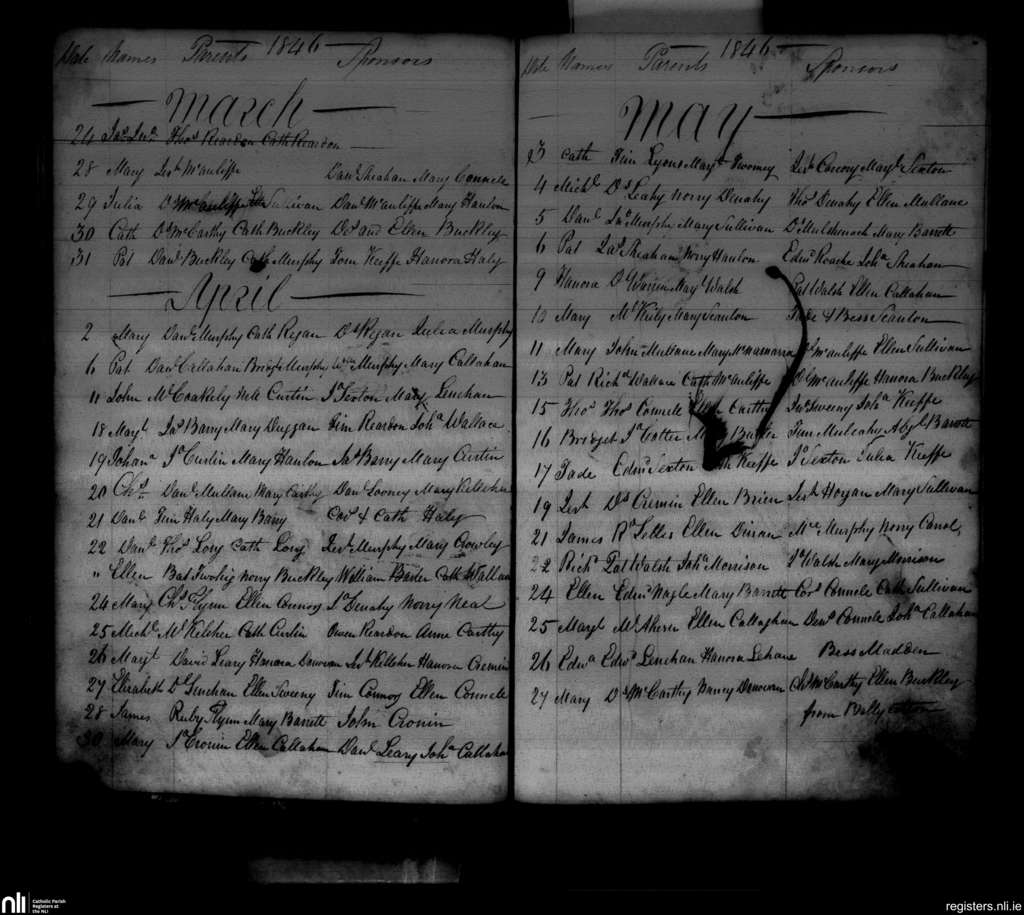 Date Names Parents 1846 Sponsors
March
24 Thos Reardon Cath Reardon
28 Mary Jerh McAuliffe Danl Sheahan Mary Connele
29 Julia Sullivan Danl McAuliffe Mary Hanlon
30 Cath Ds McCarthy Cath Buckley Ds and Ellen Buckley
31 Pat Danl Buckley Cath Murphy Tom Keeffe Hanora Haly
April
2 Mary Danl Murphy Cath Regan Ds Regan Julia Murphy
6 Pat Danl Callahan Bridgt Murphy Wm Murphy Mary Callahan
11 John Ml Coakely Curtin Js Sexton Mary Lenehan
18 Margt Jas Barry Mary Duggan Tim Reardon Joha Wallace
19 Johana Js Curtin Mary Hanlon Jas Barry Mary Curtin
20 Chs Danl Mullane Mary Carthy Danl Looney Mary Kelleher
21 Danl Tim Haly Mary Barry Cors & Cath Haly
22 Danl Thos Long Cath Long Jerh Murphy Mary Crowley
" Ellen Bat Twohig Norry Buckley William Barter Cath Wallace
24 Mary Chs Flynn Ellen Connory Js Denahy Norry Neal
25 Michl Ml Keleher Cath Curtin Owen Reardon Anne Carthy
26 Margt David Leary Hanora Donovan Jerh Kelleher Hanora Cremin
27 Elizabeth Ds Lenehan Ellen Sweeny Tim Connory Ellen Connele
28 James Ruby Flynn Mary Barrett John Cronin
30 Mary Js Cronin Ellen Callahan Danl Leary Joha Callahan
Date Names Parents 1846 Sponsors
May
3 Cath Tim Lyons Margt Twomey Jerh Conory Margt Sexton
4 Michl Ds Leahy Norry Denahy Thos Denahy Ellen Mullane
5 Danl Jas Murphy Mary Sullivan Mary Barrett
6 Pat Jas Sheahan Norry Hanlon Edmd Roache Joha Sheahan
9 Hanora Mary Walsh Pat Walsh Ellen Callahan
10 Mary Ml Kiely Mary Scanlon Jade & Bess Scanlon
11 Mary John Mullane Mary McNamarra McAuliffe Ellen Sullivan
13 Pat Richd Wallace Cath McAuliffe McAuliffe Hanora Buckley
15 Thos Thos Connele Ellen Carthy Jas Sweeny Joha Keeffe
16 Bridget Js Cotter Mary Barter Tim Mulcahy Abgl Barrett
17 Jade Edmd Sexton Cath Keeffe Js Sexton Julia Keeffe
19 Jerh Ds Cremin Ellen Brien Jerh Horgan Mary Sullivan
21 James Rd Selles Ellen Dinan Murphy Norry Carrol
22 Richd Pat Walsh Joha Morrison Js Walsh Mary Morrison
24 Ellen Edmd Nagle Mary Barrett Cors Connele Cath Sullivan
25 Margt Ml Ahern Ellen Callaghan Denis Connele Joha Callahan
26 Edwd Edwd Lenehan Hanora Lehane Bess Madden
27 Mary Ds McCarthy Nancy Donovan McCarthy Ellen Buckley
from
nli
Catholic Parish
Registers at
the NLI
registers.nli.ie